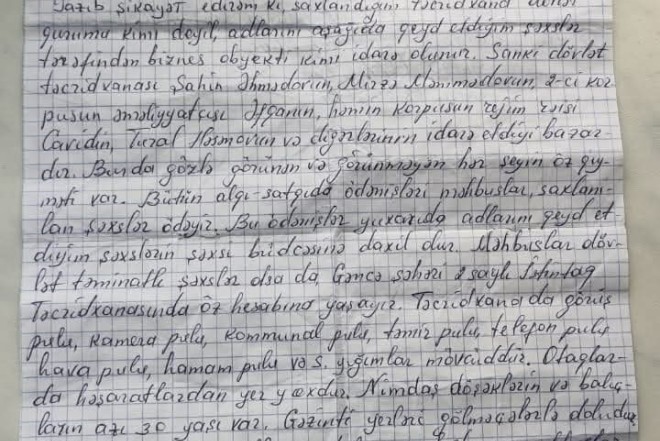 Yazıb şikayət edirəm ki, saxlandığım təcridxana dövlət
qurumu kimi deyil, adlarını aşağıda qeyd etdiyim şəxslər
tərəfindən biznes obyekti kimi idarə olunur. Sanki dövlət
təcridxanası Şahin Əhmədovun, Mirzə Məmmədovun, 2-ci kor-
pusun əməliyyatçısı Əfqanın, həmin korpusun rejim rəisi
Cavidin, Tural Həsimovun və digərlərinin idarə etdiyi bazar-
dır. Burda gözlə görünən və görünməyən hər şeyin öz qiy-
məti var. Bütün alqı-satqıda ödənişləri məhbuslar, saxlanı-
lan şəxslər ödəyir. Bu ödənişlər yuxarıda adlarını qeyd et-
diyim şəxslərin şəxsi büdcəsinə daxil dur. Məhbuslar döv-
lət təminatlı şəxslər olsa da, Gəncə şəhəri 2 saylı İstintaq
Təcridxanasında öz hesabına yaşayır. Təcridxanada görüş
pulu, kamera pulu, kommunal pulu, təmir pulu, telefon pulu,
hava pulu, hamam pulu və s. yığımlar mövcuddur. Otaqlar-
da həşaratlardan yer yoxdur. Nimdaş döşəklərin və balış-
ların azı 30 yaşı var. Gəzinti yerləri gölməçələrlə doludur,